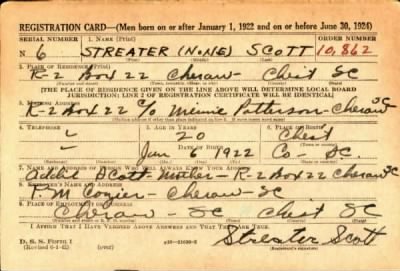 REGISTRATION CARD—(Men born on or after January 1, 1922 and on or before June 30, 1924)
SERIAL NUMBER 1. NAME (Print) ORDER NUMBER
N 6 STREATER (NONE) SCOTT 10,862
(First) (Middle) (Last)
2. PLACE OF RESIDENCE (Print)
R-2 Box 22 Cheraw Chest SC
[THE PLACE OF RESIDENCE GIVEN ON THE LINE ABOVE WILL DETERMINE LOCAL BOARD
JURISDICTION; LINE 2 OF REGISTRATION CERTIFICATE WILL BE IDENTICAL]
3. MAILING ADDRESS
R-2 Box 22 c/o Minnie Patterson - Cheraw SC
4. TELEPHONE 5. AGE IN YEARS 6. PLACE OF BIRTH
20 Chest
DATE OF BIRTH
Jan 6 1922 Co. SC.
7. NAME AND ADDRESS OF PERSON WHO WILL ALWAYS KNOW YOUR ADDRESS
Addie Scott - Mother - R-2 Box 22 Cheraw SC
8. EMPLOYER'S NAME AND ADDRESS
Cheraw - SC
9. PLACE OF EMPLOYMENT OR BUSINESS
Cheraw - SC Chest SC
I AFFIRM THAT I HAVE VERIFIED ABOVE ANSWERS AND THAT THEY ARE TRUE.
D. S. S. Form 1
(Revised 6-9-41) (over)
Streater Scott
(Registrant's signature)